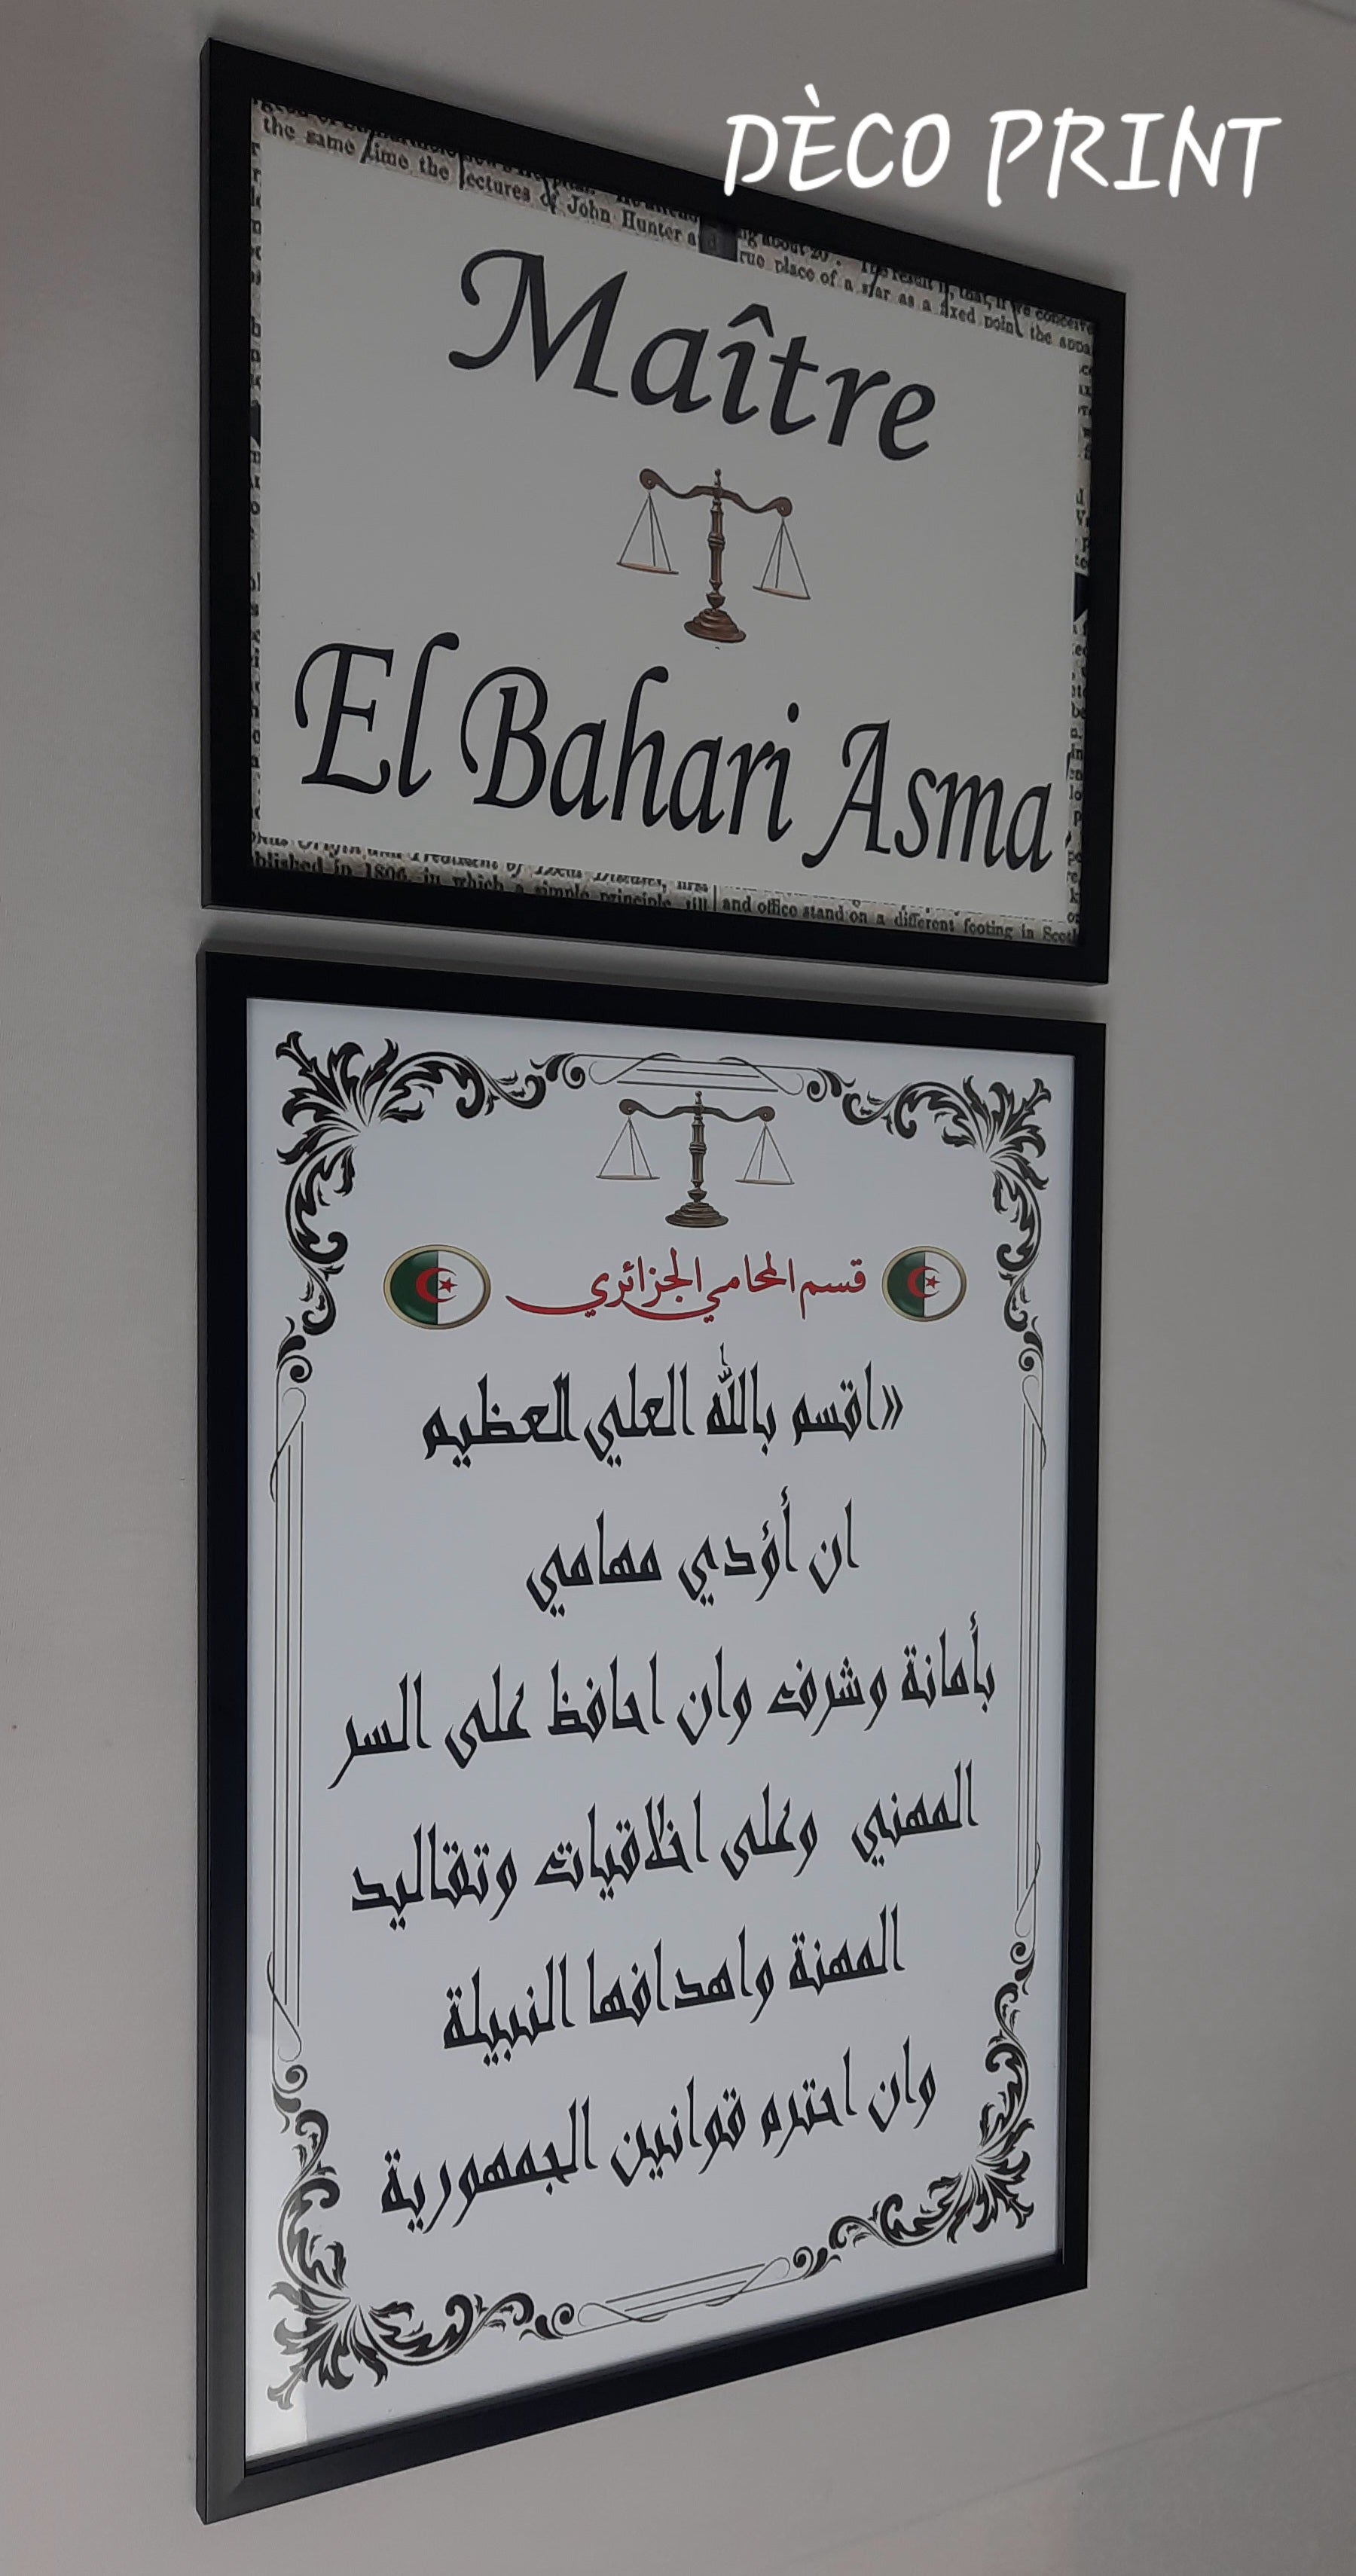 DÈCO PRINT
the same time the lectures of John Hunter
true place of a star as a fixed point the appa
Maître
El Bahari Asma
blished in 1806, in which a simple principle till
and office stand on a different footing in Scotl
قسم المحامي الجزائري
«اقسم بالله العلي العظيم
ان أؤدي مهامي
بأمانة وشرف وان احافظ على السر
المهني وعلى اخلاقيات وتقاليد
المهنة واهدافها النبيلة
وان احترم قوانين الجمهورية